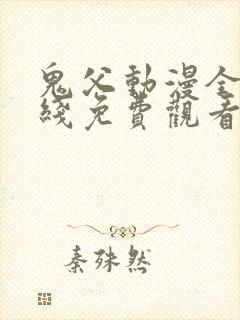 鬼父動漫全
綫免費觀看
秦殊然